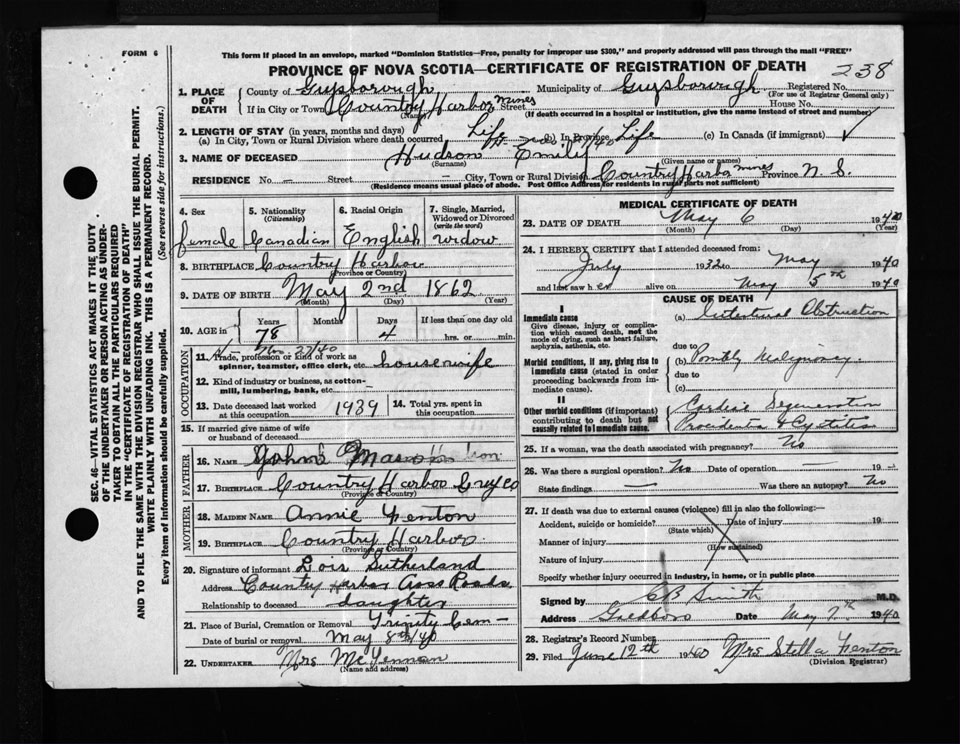 FORM 6
This form if placed in an envelope, marked "Dominion Statistics—Free, penalty for improper use $300," and properly addressed will pass through the mail "FREE"
PROVINCE OF NOVA SCOTIA—CERTIFICATE OF REGISTRATION OF DEATH
238
SEC. 46—VITAL STATISTICS ACT MAKES IT THE DUTY
OF THE UNDERTAKER OR PERSON ACTING AS UNDER-
TAKER TO OBTAIN ALL THE PARTICULARS REQUIRED
IN THE "CERTIFICATE OF REGISTRATION OF DEATH"
AND TO FILE THE SAME WITH THE DIVISION REGISTRAR WHO SHALL ISSUE THE BURIAL PERMIT.
WRITE PLAINLY WITH UNFADING INK. THIS IS A PERMANENT RECORD.
Every item of information should be carefully supplied. (See reverse side for instructions.)
1. PLACE OF DEATH
County of Guysborough Municipality of Guysborough Registered No.
(For use of Registrar General only)
If in City or Town Country Harbor Mines Street House No.
(Name) (If death occurred in a hospital or institution, give the name instead of street and number)
2. LENGTH OF STAY (in years, months and days)
(a) In City, Town or Rural Division where death occurred Life (b) In Province Life (c) In Canada (if immigrant) ✓
3. NAME OF DECEASED Hudson Emily
(Surname) (Given name or names)
RESIDENCE No. — Street — City, Town or Rural Division Country Harbor mines Province N. S.
(Residence means usual place of abode. Post Office Address for residents in rural parts not sufficient)
4. Sex
female
5. Nationality (Citizenship)
Canadian
6. Racial Origin
English
7. Single, Married, Widowed or Divorced (write the word)
widow
8. BIRTHPLACE Country Harbor
(Province or Country)
9. DATE OF BIRTH May 2nd 1862
(Month) (Day) (Year)
10. AGE in
Years 78
Months
Days 4
If less than one day old
hrs. or min.
OCCUPATION
11. Trade, profession or kind of work as
spinner, teamster, office clerk, etc. housewife
12. Kind of industry or business, as cotton-
mill, lumbering, bank, etc.
13. Date deceased last worked
at this occupation 1939
14. Total yrs. spent in
this occupation
15. If married give name of wife
or husband of deceased
FATHER
16. NAME John Mason
17. BIRTHPLACE Country Harbor Guy Co
(Province or Country)
MOTHER
18. MAIDEN NAME Annie Fenton
19. BIRTHPLACE Country Harbor
(Province or Country)
20. Signature of informant Lois Sutherland
Address Country Harbor Cross Roads
Relationship to deceased daughter
21. Place of Burial, Cremation or Removal Trinity Cem—
Date of burial or removal May 8th/40
22. UNDERTAKER Mrs McLennan
(Name and address)
MEDICAL CERTIFICATE OF DEATH
23. DATE OF DEATH May 6 1940
(Month) (Day) (Year)
24. I HEREBY CERTIFY that I attended deceased from:
July 1932 to May 1940
and last saw h er alive on May 5th 1940
CAUSE OF DEATH
I
Immediate cause
Give disease, injury or complica-
tion which caused death, not the
mode of dying, such as heart failure,
asphyxia, asthenia, etc.
(a) Intestinal Obstruction
due to
Morbid conditions, if any, giving rise to
immediate cause (stated in order
proceeding backwards from im-
mediate cause).
(b) Possibly Malignancy
due to
(c)
II
Other morbid conditions (if important)
contributing to death but not
causally related to immediate cause.
Cardiac Degeneration
Procidentia & Cystitis
25. If a woman, was the death associated with pregnancy? No
26. Was there a surgical operation? No Date of operation — 19
State findings — Was there an autopsy? No
27. If death was due to external causes (violence) fill in also the following:—
Accident, suicide or homicide? Date of injury 19
(State which)
Manner of injury
(How sustained)
Nature of injury
Specify whether injury occurred in industry, in home, or in public place
Signed by C B Smith M.D.
Address Goldboro Date May 7th 1940
28. Registrar's Record Number
29. Filed June 12th 1940 Mrs Stella Fenton
(Division Registrar)